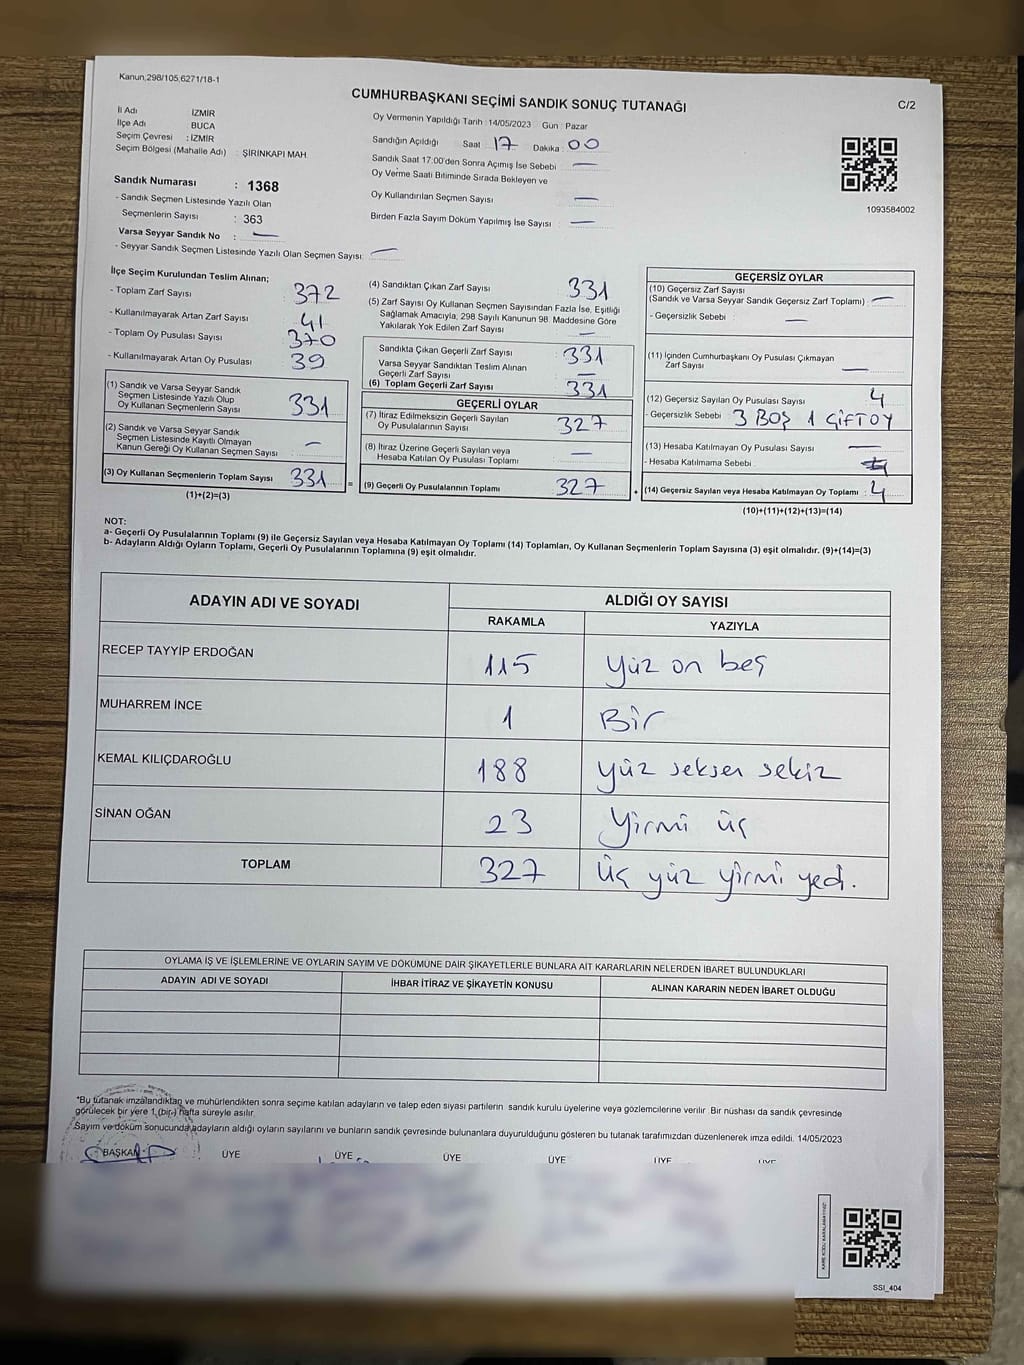 Kanun;298/105,6271/18-1
CUMHURBAŞKANI SEÇİMİ SANDIK SONUÇ TUTANAĞI
C/2
İl Adı İZMİR
İlçe Adı BUCA
Seçim Çevresi : İZMİR
Seçim Bölgesi (Mahalle Adı) : ŞİRİNKAPI MAH
Sandık Numarası : 1368
- Sandık Seçmen Listesinde Yazılı Olan
Seçmenlerin Sayısı : 363
Varsa Seyyar Sandık No : —
- Seyyar Sandık Seçmen Listesinde Yazılı Olan Seçmen Sayısı: —
Oy Vermenin Yapıldığı Tarih : 14/05/2023 Gün : Pazar
Sandığın Açıldığı Saat 17 Dakika : 00
Sandık Saat 17:00'den Sonra Açımış İse Sebebi —
Oy Verme Saati Bitiminde Sırada Bekleyen ve
Oy Kullandırılan Seçmen Sayısı —
Birden Fazla Sayım Döküm Yapılmış İse Sayısı —
1093584002
İlçe Seçim Kurulundan Teslim Alınan;
- Toplam Zarf Sayısı : 372
- Kullanılmayarak Artan Zarf Sayısı : 41
- Toplam Oy Pusulası Sayısı : 370
- Kullanılmayarak Artan Oy Pusulası : 39
(1) Sandık ve Varsa Seyyar Sandık
Seçmen Listesinde Yazılı Olup
Oy Kullanan Seçmenlerin Sayısı : 331
(2) Sandık ve Varsa Seyyar Sandık
Seçmen Listesinde Kayıtlı Olmayan
Kanun Gereği Oy Kullanan Seçmen Sayısı : —
(3) Oy Kullanan Seçmenlerin Toplam Sayısı : 331
(1)+(2)=(3)
(4) Sandıktan Çıkan Zarf Sayısı : 331
(5) Zarf Sayısı Oy Kullanan Seçmen Sayısından Fazla İse, Eşitliği
Sağlamak Amacıyla, 298 Sayılı Kanunun 98. Maddesine Göre
Yakılarak Yok Edilen Zarf Sayısı : —
Sandıkta Çıkan Geçerli Zarf Sayısı : 331
Varsa Seyyar Sandıktan Teslim Alınan
Geçerli Zarf Sayısı : —
(6) Toplam Geçerli Zarf Sayısı : 331
GEÇERLİ OYLAR
(7) İtiraz Edilmeksizin Geçerli Sayılan
Oy Pusulalarının Sayısı : 327
(8) İtiraz Üzerine Geçerli Sayılan veya
Hesaba Katılan Oy Pusulası Toplamı : —
= (9) Geçerli Oy Pusulalarının Toplamı : 327
GEÇERSİZ OYLAR
(10) Geçersiz Zarf Sayısı
(Sandık ve Varsa Seyyar Sandık Geçersiz Zarf Toplamı) : —
- Geçersizlik Sebebi : —
(11) İçinden Cumhurbaşkanı Oy Pusulası Çıkmayan
Zarf Sayısı : —
(12) Geçersiz Sayılan Oy Pusulası Sayısı : 4
- Geçersizlik Sebebi : 3 BOŞ 1 ÇİFTOY
(13) Hesaba Katılmayan Oy Pusulası Sayısı : —
- Hesaba Katılmama Sebebi :
+ (14) Geçersiz Sayılan veya Hesaba Katılmayan Oy Toplamı : 4
(10)+(11)+(12)+(13)=(14)
NOT:
a- Geçerli Oy Pusulalarının Toplamı (9) ile Geçersiz Sayılan veya Hesaba Katılmayan Oy Toplamı (14) Toplamları, Oy Kullanan Seçmenlerin Toplam Sayısına (3) eşit olmalıdır. (9)+(14)=(3)
b- Adayların Aldığı Oyların Toplamı, Geçerli Oy Pusulalarının Toplamına (9) eşit olmalıdır.
ADAYIN ADI VE SOYADI ALDIĞI OY SAYISI
RAKAMLA YAZIYLA
RECEP TAYYİP ERDOĞAN 115 Yüz on beş
MUHARREM İNCE 1 Bir
KEMAL KILIÇDAROĞLU 188 Yüz seksen sekiz
SİNAN OĞAN 23 Yirmi üç
TOPLAM 327 üç yüz yirmi yedi.
OYLAMA İŞ VE İŞLEMLERİNE VE OYLARIN SAYIM VE DÖKÜMÜNE DAİR ŞİKAYETLERLE BUNLARA AİT KARARLARIN NELERDEN İBARET BULUNDUKLARI
ADAYIN ADI VE SOYADI İHBAR İTİRAZ VE ŞİKAYETİN KONUSU ALINAN KARARIN NEDEN İBARET OLDUĞU
*Bu tutanak imzalandıktan ve mühürlendikten sonra seçime katılan adayların ve talep eden siyasi partilerin sandık kurulu üyelerine veya gözlemcilerine verilir. Bir nüshası da sandık çevresinde
görülecek bir yere 1 (bir) hafta süreyle asılır.
Sayım ve döküm sonucunda adayların aldığı oyların sayılarını ve bunların sandık çevresinde bulunanlara duyurulduğunu gösteren bu tutanak tarafımızdan düzenlenerek imza edildi. 14/05/2023
BAŞKAN ÜYE ÜYE ÜYE ÜYE ÜYE ÜYE
KARE KODU KARALAMAYINIZ!
SSİ_404